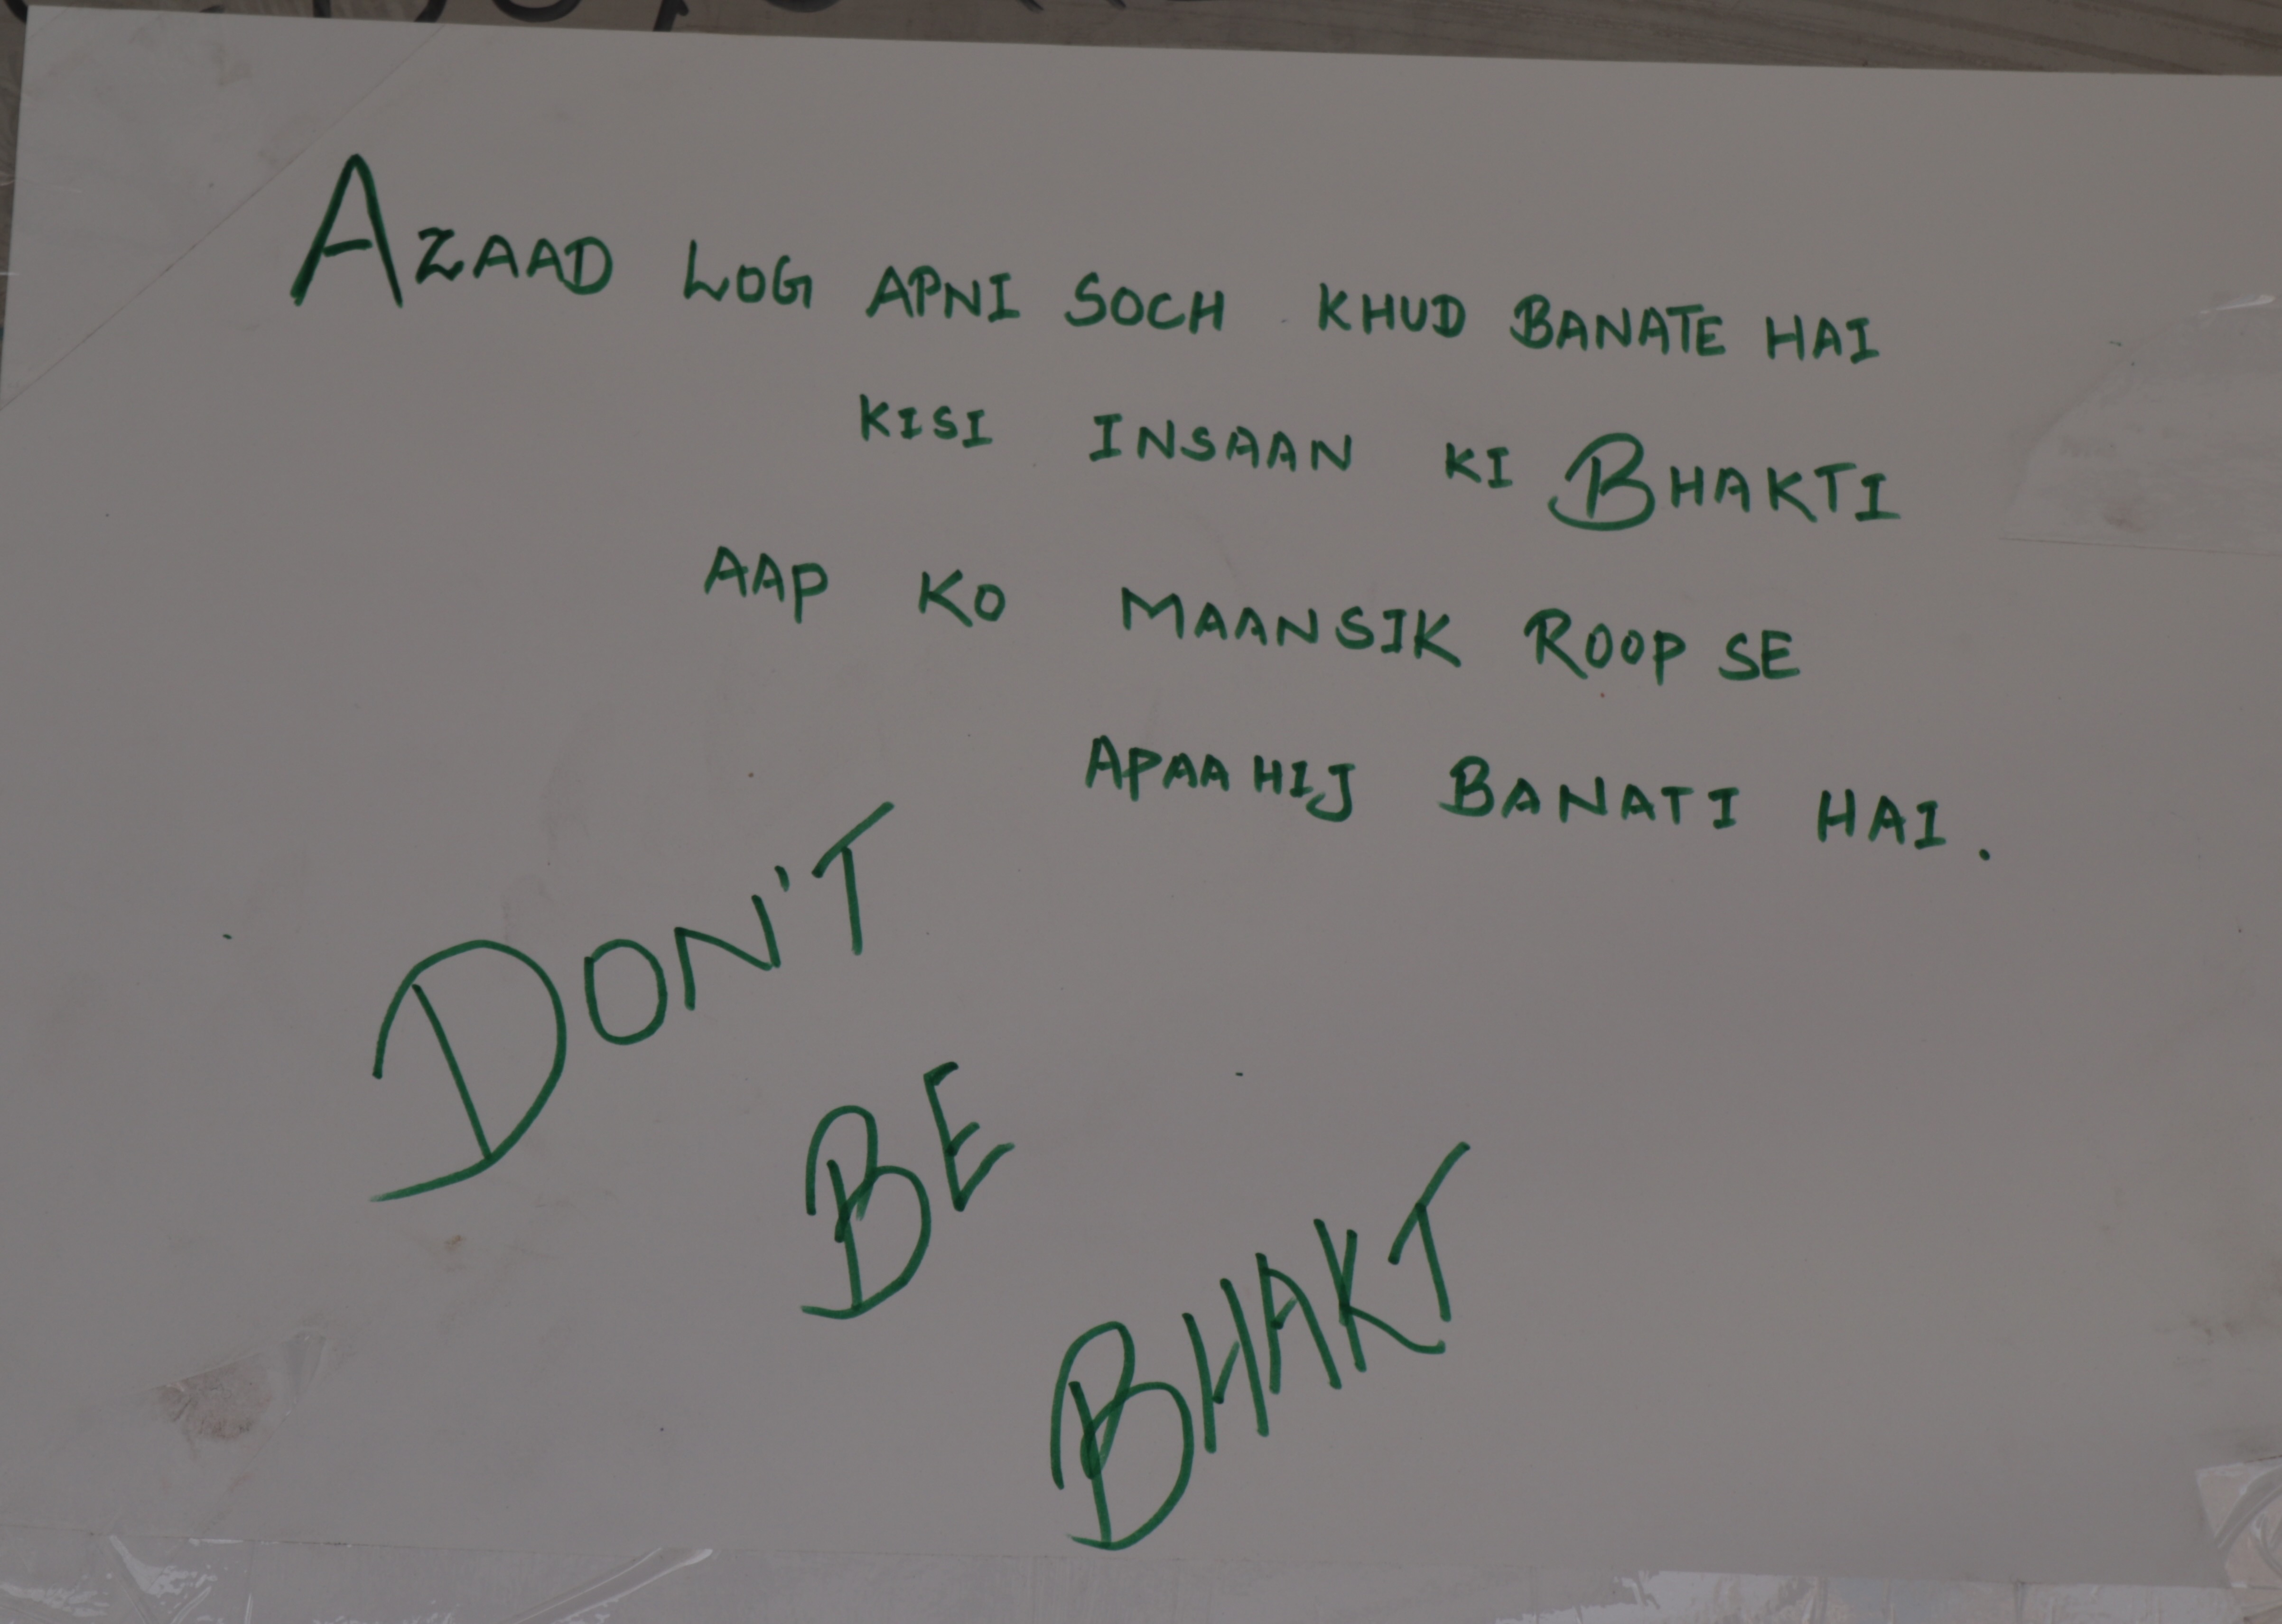 AZAAD LOG APNI SOCH KHUD BANATE HAI
KISI INSAAN KI BHAKTI
AAP KO MAANSIK ROOP SE
APAAHIJ BANATI HAI.
DON'T
BE
BHAKT